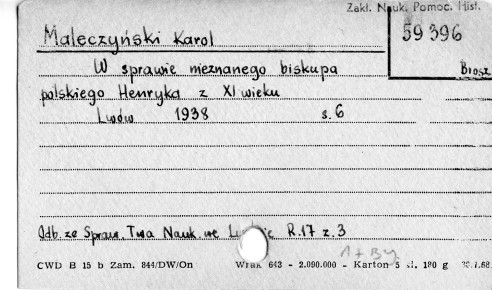 Zakł. Nauk. Pomoc. Hist.
Maleczyński Karol
59 396
W sprawie nieznanego biskupa
Brosz
polskiego Henryka z XI wieku
Lwów 1938 s. 6
Odb. ze Spraw. Twa Nauk. we R. 17 z. 3
1+By
CWD B 15 b Zam. 844/DW/On Wrak 643 - 2.090.000 - Karton 5 kl. 180 g